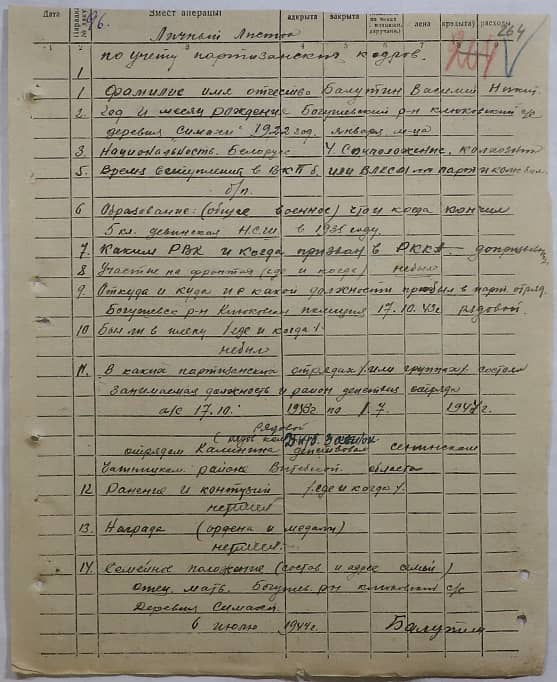 Дата Змест аперацыі адкрыта закрыта лена крэдытаў расходы
96. Личный Листок 204 264
по учету партизанских кадров.
1 2 3 4 5 6 7
1 Фамилие имя отчество Балутин Василий
2. Год и месяц рождения Богушевский р-н Клюковский с/с
деревня Симаки 1922 год. январь м-ца
3. Национальность. Белорус 4. Соцположение. колхозник
5. Время вступления в ВКПб. или ВЛКСМ
б/п.
6 Образование: (общее военное) что и когда кончил
5 кл. Н.С.Ш. в 1935 году.
7. Каким РВК и когда призван в РККА. —
8 Участие на фронтах (где и когда) небыл
9. Откуда и куда и в какой должности прибыл в парт отряд.
Богушевск р-н Клюковская полиция 17.10.43г рядовой.
10 Был ли в плену /где и когда/.
небыл
11. В каких партизанских отрядах /или группах/ состоял
Занимаемая должность и район действия отряда
а/с 17.10. 1943г по 1.7 1944г.
рядовой
отрядом Калинина действовал Сенинском
Чашницком района Витебской области
12 Ранения и контузии /где и когда/.
неимел
13. Награда (ордена и медали)
неимел.
14. Семейное положение (состав и адрес семьи)
отец. мать. Богушев. р-н Клюковский с/с
Деревня Симаки
6 июлю 1944г. Балутин